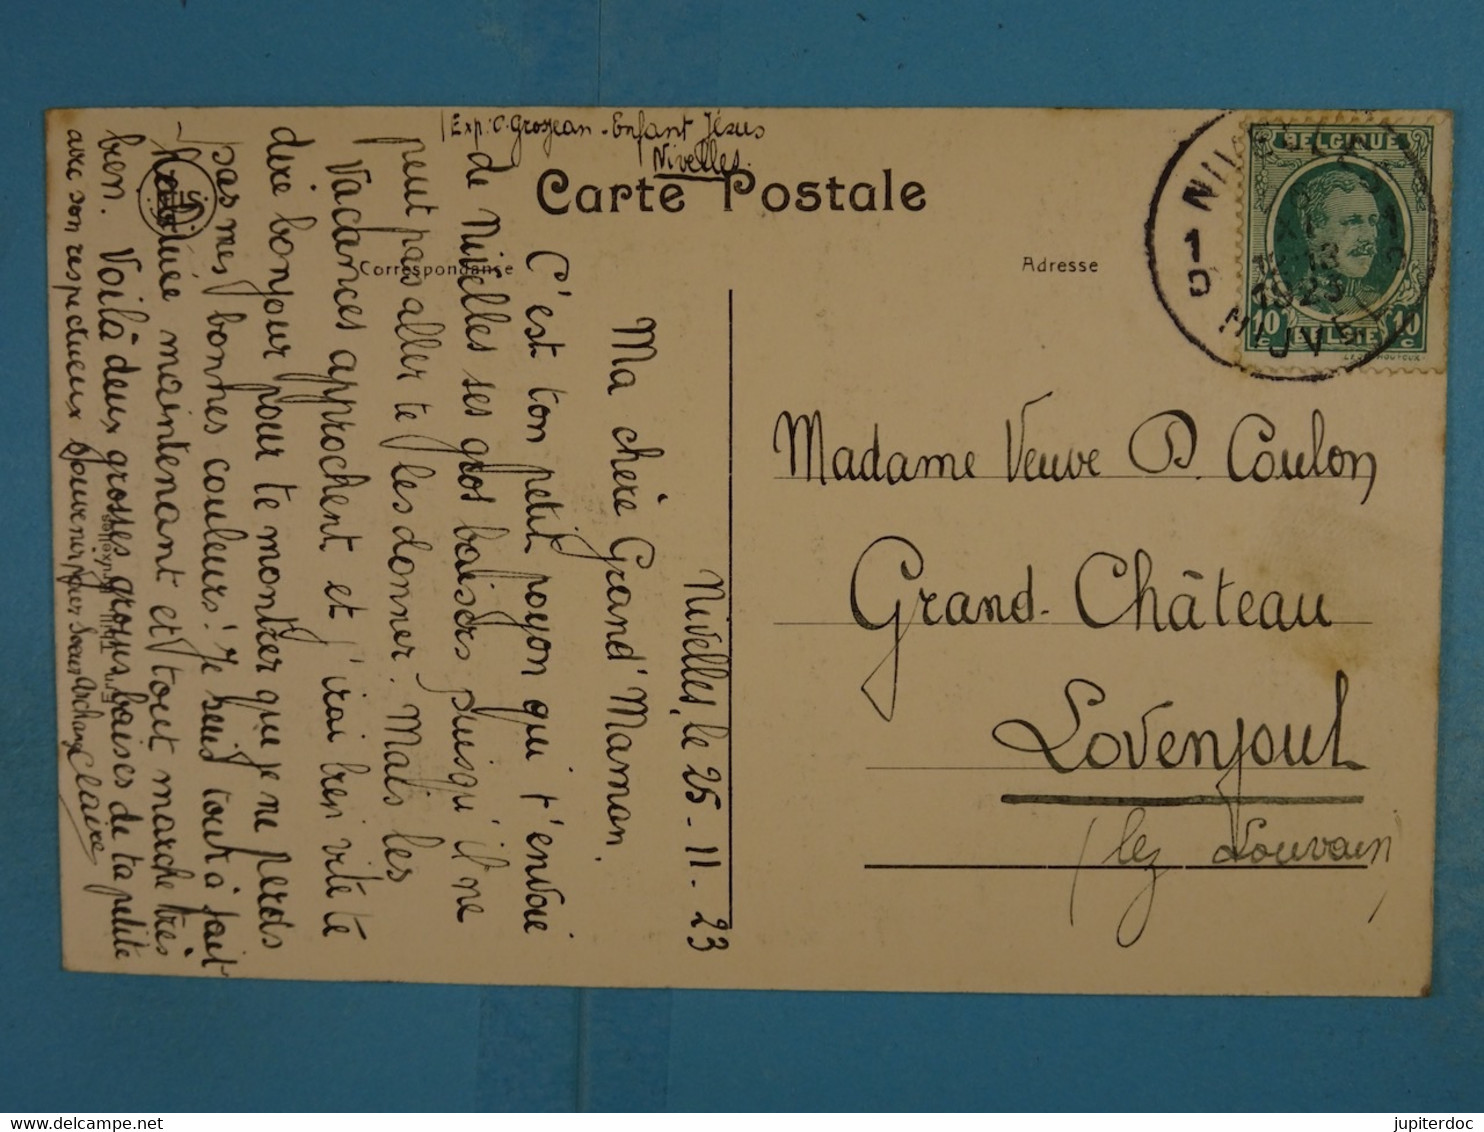 Exp: C. Grosjean - Enfant Jésus
Nivelles.
Carte Postale
Correspondance
Adresse
BELGIQUE
1923
10 c
BELGIË
10 c
Nivelles, le 25-11-23
Ma chère Grand' Maman.
C'est ton petit poyon qui t'envoie
de Nivelles ses gros baisers puisqu'il ne
peut pas aller te les donner. Mais les
Vacances approchent et j'irai bien vite te
dire bonjour pour te montrer que je ne perds
pas mes bonnes couleurs! Je suis tout à fait
maintenant et tout marche très
bien. Voilà deux grosses grosses baises de ta petite
Claire
avec son respectueux souvenir pour Soeur Archange
Madame Veuve D. Coulon
Grand-Château
Lovenjoul
(lez Louvain)
jupiterdoc